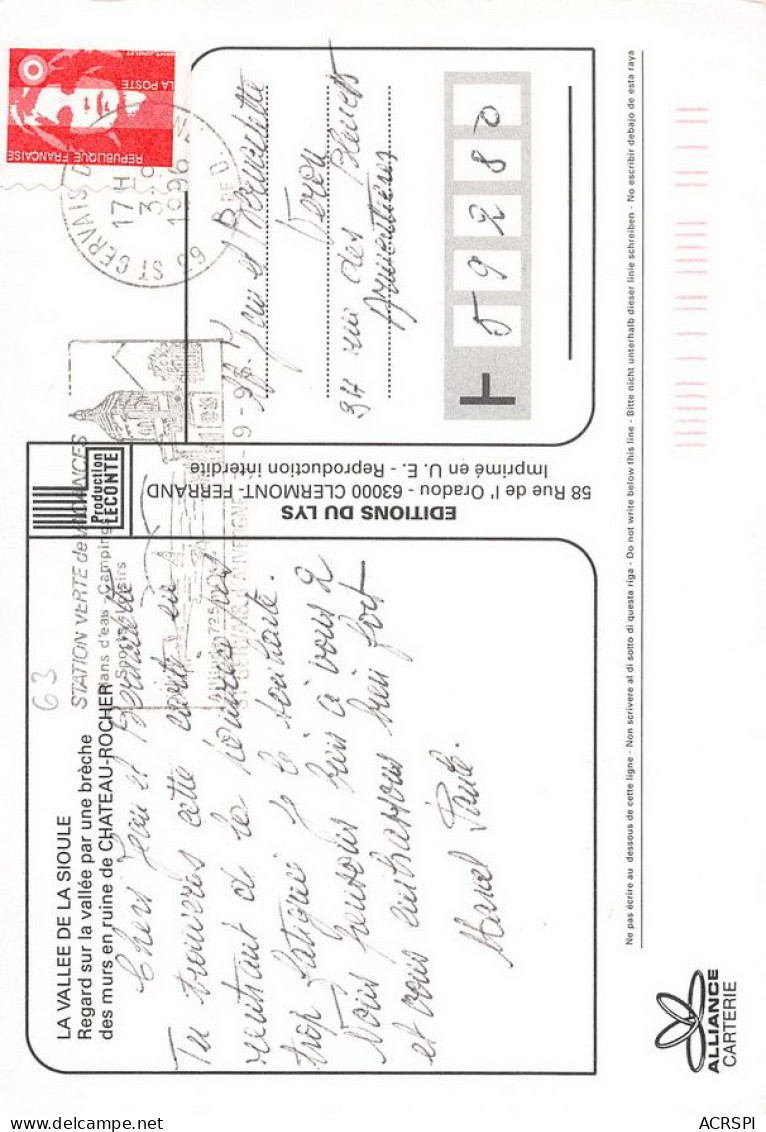 LA VALLEE DE LA SIOULE
Regard sur la vallée par une brèche
des murs en ruine de CHATEAU-ROCHER
63
Chers Jean et Bernadette
Tu trouveras cette carte en
rentrant de la
trop fatigué je le souhaite.
Nous pensons bien à vous 2
et vous embrassons bien fort
Marcel Paule.
STATION VERTE de VACANCES
Plans d'eau - Camping
EDITIONS DU LYS
58 Rue de l' Oradou - 63000 CLERMONT-FERRAND
Imprimé en U. E. - Reproduction interdite
Production
LECONTE
LA POSTE
REPUBLIQUE FRANÇAISE
63 ST GERVAIS D'
P. DE D.
17 H
3-9
1996
Jean et Bernadette
34 rue des
Armentières
59280
Ne pas écrire au dessous de cette ligne - Non scrivere al di sotto di questa riga - Do not write below this line - Bitte nicht unterhalb dieser linie schreiben - No escribir debajo de esta raya
ALLIANCE
CARTERIE
ACRSPI